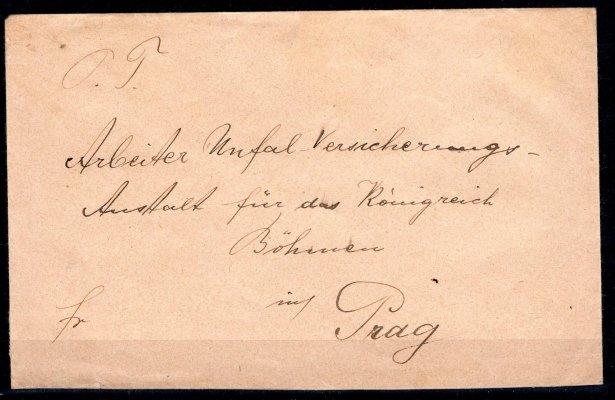 P. T.
Arbeiter Unfal-Versicherungs-
Anstalt für das Königreich
Böhmen
in
Prag
fr